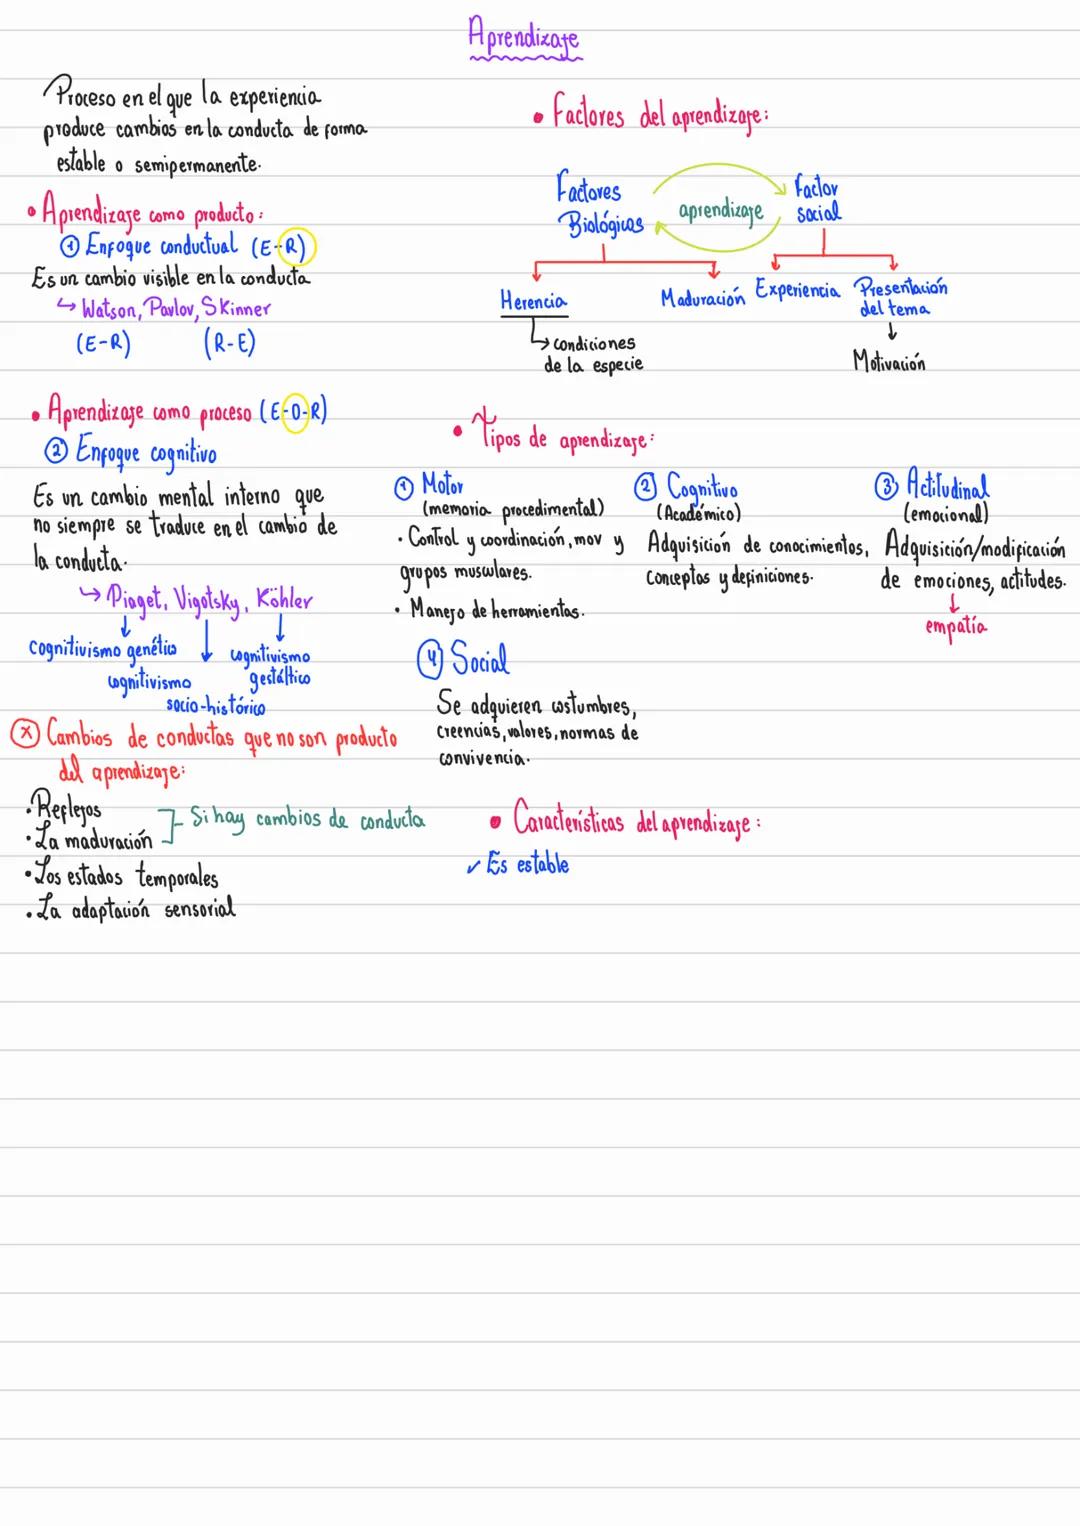 Aprendizaje
Proceso en el que la experiencia
produce cambios en la conducta de forma
estable o semipermanente.
• Aprendizaje como producto:
① Enfoque conductual (E-R)
Es un cambio visible en la conducta
↳ Watson, Pavlov, Skinner
(E-R) (R-E)
• Aprendizaje como proceso (E-O-R)
② Enfoque cognitivo
Es un cambio mental interno que
no siempre se traduce en el cambio de
la conducta.
↳ Piaget, Vigotsky, Köhler
cognitivismo genético
cognitivismo
socio-histórico
cognitivismo
gestáltico
ⓧ Cambios de conductas que no son producto
del aprendizaje:
• Reflejos
• La maduración
Si hay cambios de conducta
• Los estados temporales
• La adaptación sensorial
• Factores del aprendizaje:
Factores
Biológicos
aprendizaje
Factor
social
Herencia
Maduración
Experiencia
Presentación
del tema
↳ condiciones
de la especie
Motivación
• Tipos de aprendizaje:
① Motor
(memoria procedimental)
• Control y coordinación, mov y
grupos musculares.
• Manejo de herramientas.
② Cognitivo
(Académico)
Adquisición de conocimientos,
conceptos y definiciones.
③ Actitudinal
(emocional)
Adquisición/modificación
de emociones, actitudes.
empatía
④ Social
Se adquieren costumbres,
creencias, valores, normas de
convivencia.
• Características del aprendizaje:
✓ Es estable